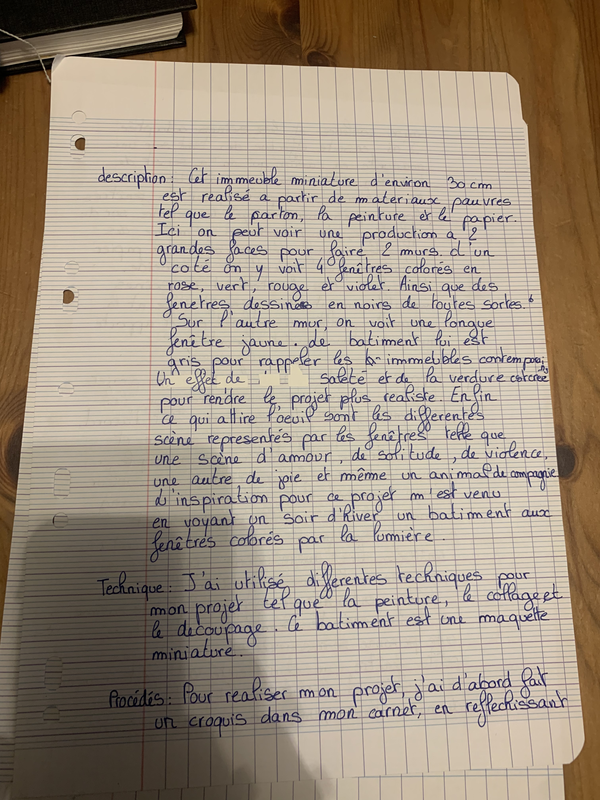 description : Cet immeuble miniature d'environ 30 cm
est realisé a partir de materiaux pauvres
tel que le carton, la peinture et le papier.
Ici on peut voir une production a 2
grandes faces pour faire 2 murs. d'un
coté on y voit 4 fenêtres colorés en
rose, vert, rouge et violet. Ainsi que des
fenetres dessinées en noirs de toutes sortes.
Sur l'autre mur, on voit une longue
fenêtre jaune. Le batiment lui est
gris pour rappeler les immeubles contemporains
Un effet de saleté et de la verdure
pour rendre le projet plus realiste. Enfin
ce qui attire l'oeuil sont les differentes
scène representés par les fenêtres telle que
une scène d'amour, de solitude, de violence,
une autre de joie et même un animal de compagnie
L'inspiration pour ce projet m'est venu
en voyant un soir d'hiver un batiment aux
fenêtres colorés par la lumière.
Technique : J'ai utilisé differentes techniques pour
mon projet tel que la peinture, le collage et
le decoupage. Ce batiment est une maquette
miniature.
Procédés : Pour realiser mon projet, j'ai d'abord fait
un croquis dans mon carnet, en reflechissant